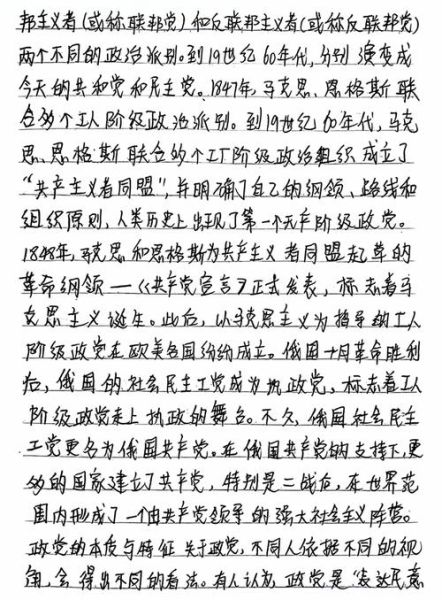 邦主义者(或称联邦党)和反联邦主义者(或称反联邦党)
两个不同的政治派别。到19世纪60年代,分别演变成
今天的共和党和民主党。1847年,马克思、恩格斯联
合多个工人阶级政治派别。到19世纪60年代,马克
思、恩格斯联合的多个工人阶级政治组织成立了
“共产主义者同盟”,并明确了自己的纲领、路线和
组织原则,人类历史上出现了第一个无产阶级政党。
1848年,马克思和恩格斯为共产主义者同盟起草的
革命纲领—《共产党宣言》正式发表,标志着马
克思主义诞生。此后,以马克思主义为指导的工人
阶级政党在欧美各国纷纷成立。俄国十月革命胜利
后,俄国的社会民主工党成为执政党,标志着工人
阶级政党走上执政的舞台。不久,俄国社会民主
工党更名为俄国共产党。在俄国共产党的支持下,更
多的国家建立了共产党,特别是二战后,在世界范
围内形成了一个由共产党领导的强大社会主义阵营。
政党的本质与特征 关于政党,不同人依据不同的视
角,会得出不同的看法。有人认为,政党是“表达民意